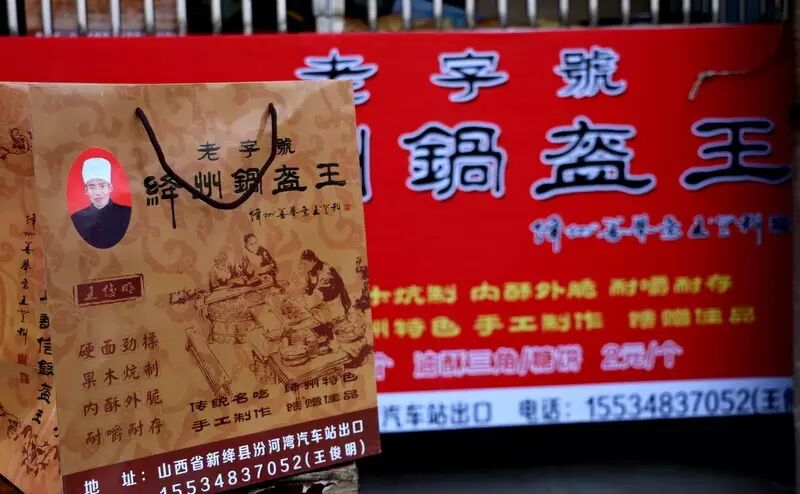 老字號
絳州鍋盔王
王俊明
硬面劲揉
果木炕制
内酥外脆
耐嚼耐存
传统名吃 绛州特色
手工制作 馈赠佳品
地 址：山西省新绛县汾河湾汽车站出口
15534837052(王俊明)
老字號
州鍋盔王
木炕制 内酥外脆 耐嚼耐存
州特色 手工制作 馈赠佳品
个 油酥三角/糖饼 2元/个
汽车站出口 电话：15534837052(王俊